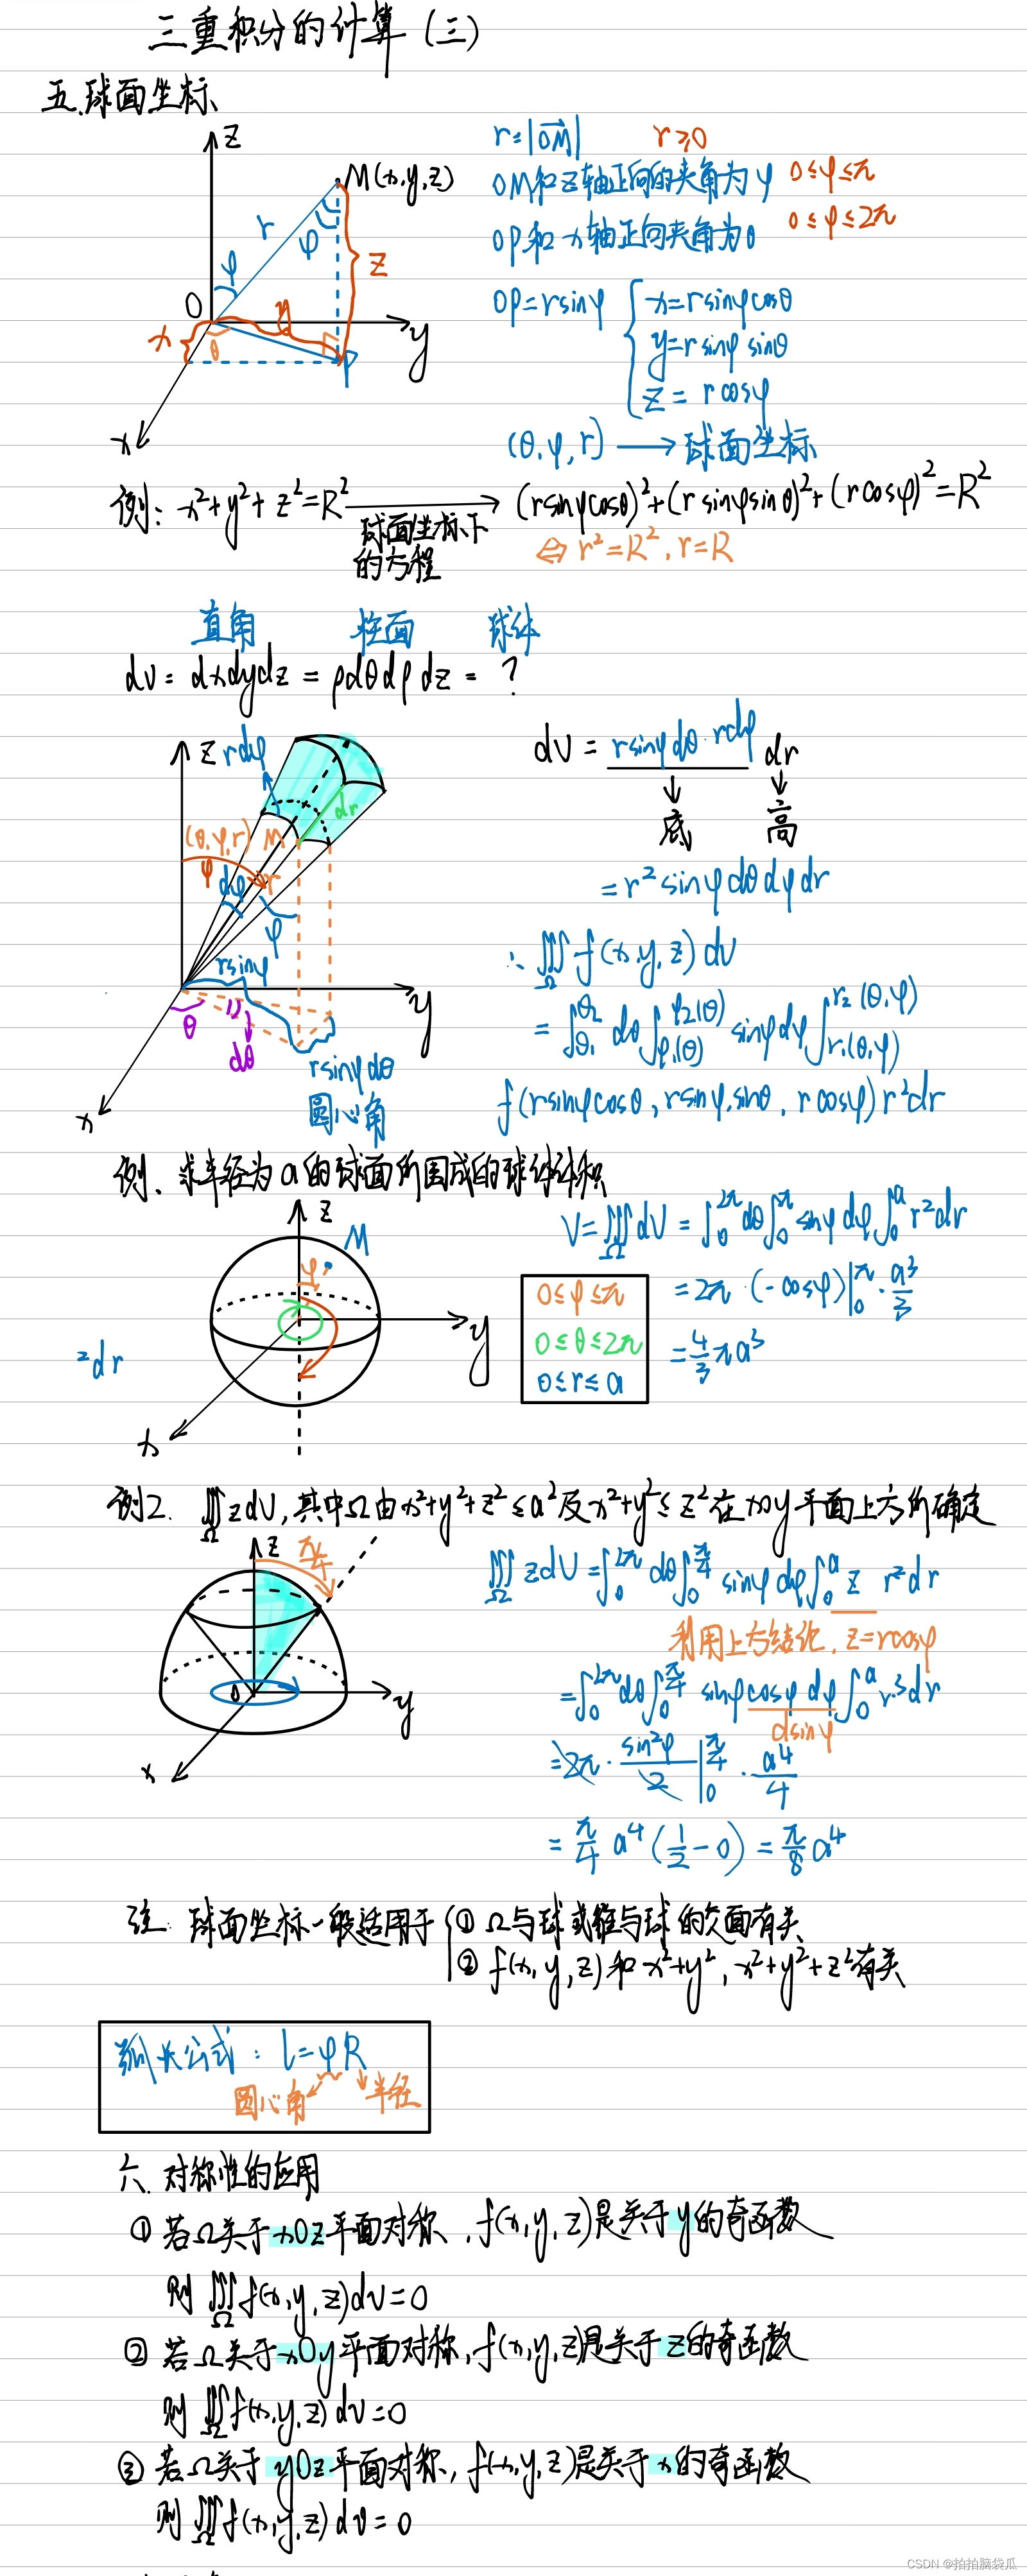 三重积分的计算(三)
五.球面坐标
z
M(x,y,z)
r
φ
φ
z
O
y
x
θ
P
y
x
r=|OM| r≥0
OM和z轴正向的夹角为φ 0≤φ≤π
OP和x轴正向夹角为θ 0≤φ≤2π
OP=rsinφ { x=rsinφcosθ
y=rsinφsinθ
z=rcosφ
(θ,φ,r) ⟶ 球面坐标
例: x²+y²+z²=R² ⟶ (rsinφcosθ)²+(rsinφsinθ)²+(rcosφ)²=R²
球面坐标下
的方程
⇔ r²=R², r=R
直角 柱面 球体
dv = dxdydz = ρdθdρdz = ?
z
rdφ
dr
(θ,φ,r)
M
φ
dφ
r
φ
rsinφ
y
θ
dθ
rsinφdθ
圆心角
x
dV = rsinφdθ·rdφ dr
↓ ↓
底 高
= r²sinφdθdφdr
∴ ∭Ω f(x,y,z)dv
= ∫θ₁^θ₂ dθ ∫φ₁(θ)^φ₂(θ) sinφdφ ∫r₁(θ,φ)^r₂(θ,φ)
f(rsinφcosθ, rsinφ.sinθ, rcosφ) r²dr
例、求半径为a的球面所围成的球体体积
z
M
φ
y
x
²dr
V=∭Ω dV = ∫0^2π dθ ∫0^π sinφdφ ∫0^a r²dr
= 2π·(-cosφ)|0^π · a³/3
= 4/3 πa³
0≤φ≤π
0≤θ≤2π
0≤r≤a
例2. ∭Ω zdV, 其中Ω由x²+y²+z²≤a²及x²+y²≤z²在xoy平面上方所确定
z
π/4
0
y
x
∭Ω zdV = ∫0^2π dθ ∫0^π/4 sinφdφ ∫0^a z r²dr
利用上方结论, z=rcosφ
= ∫0^2π dθ ∫0^π/4 sinφcosφdφ ∫0^a r³dr
dsinφ
= 2π · sin²φ/2 |0^π/4 · a⁴/4
= π/4 a⁴(1/2-0) = π/8 a⁴
注: 球面坐标一般适用于 { ① Ω与球或锥与球的交面有关
② f(x,y,z)和x²+y², x²+y²+z²有关
弧长公式: l=φR
圆心角 半径
六.对称性的应用
① 若Ω关于xOz平面对称, f(x,y,z)是关于y的奇函数
则 ∭Ω f(x,y,z)dv=0
② 若Ω关于xOy平面对称, f(x,y,z)是关于z的奇函数
则 ∭Ω f(x,y,z)dv=0
③ 若Ω关于yOz平面对称, f(x,y,z)是关于x的奇函数
则 ∭Ω f(x,y,z)dv=0
CSDN @拍拍脑袋瓜